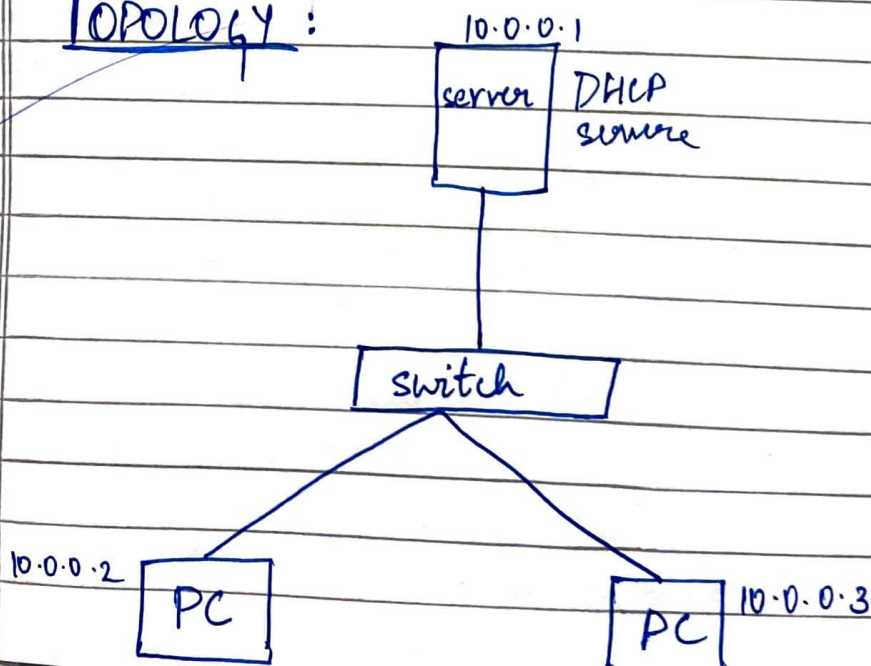 TOPOLOGY :
10.0.0.1
server
DHCP
switch
10.0.0.2
PC
PC
10.0.0.3